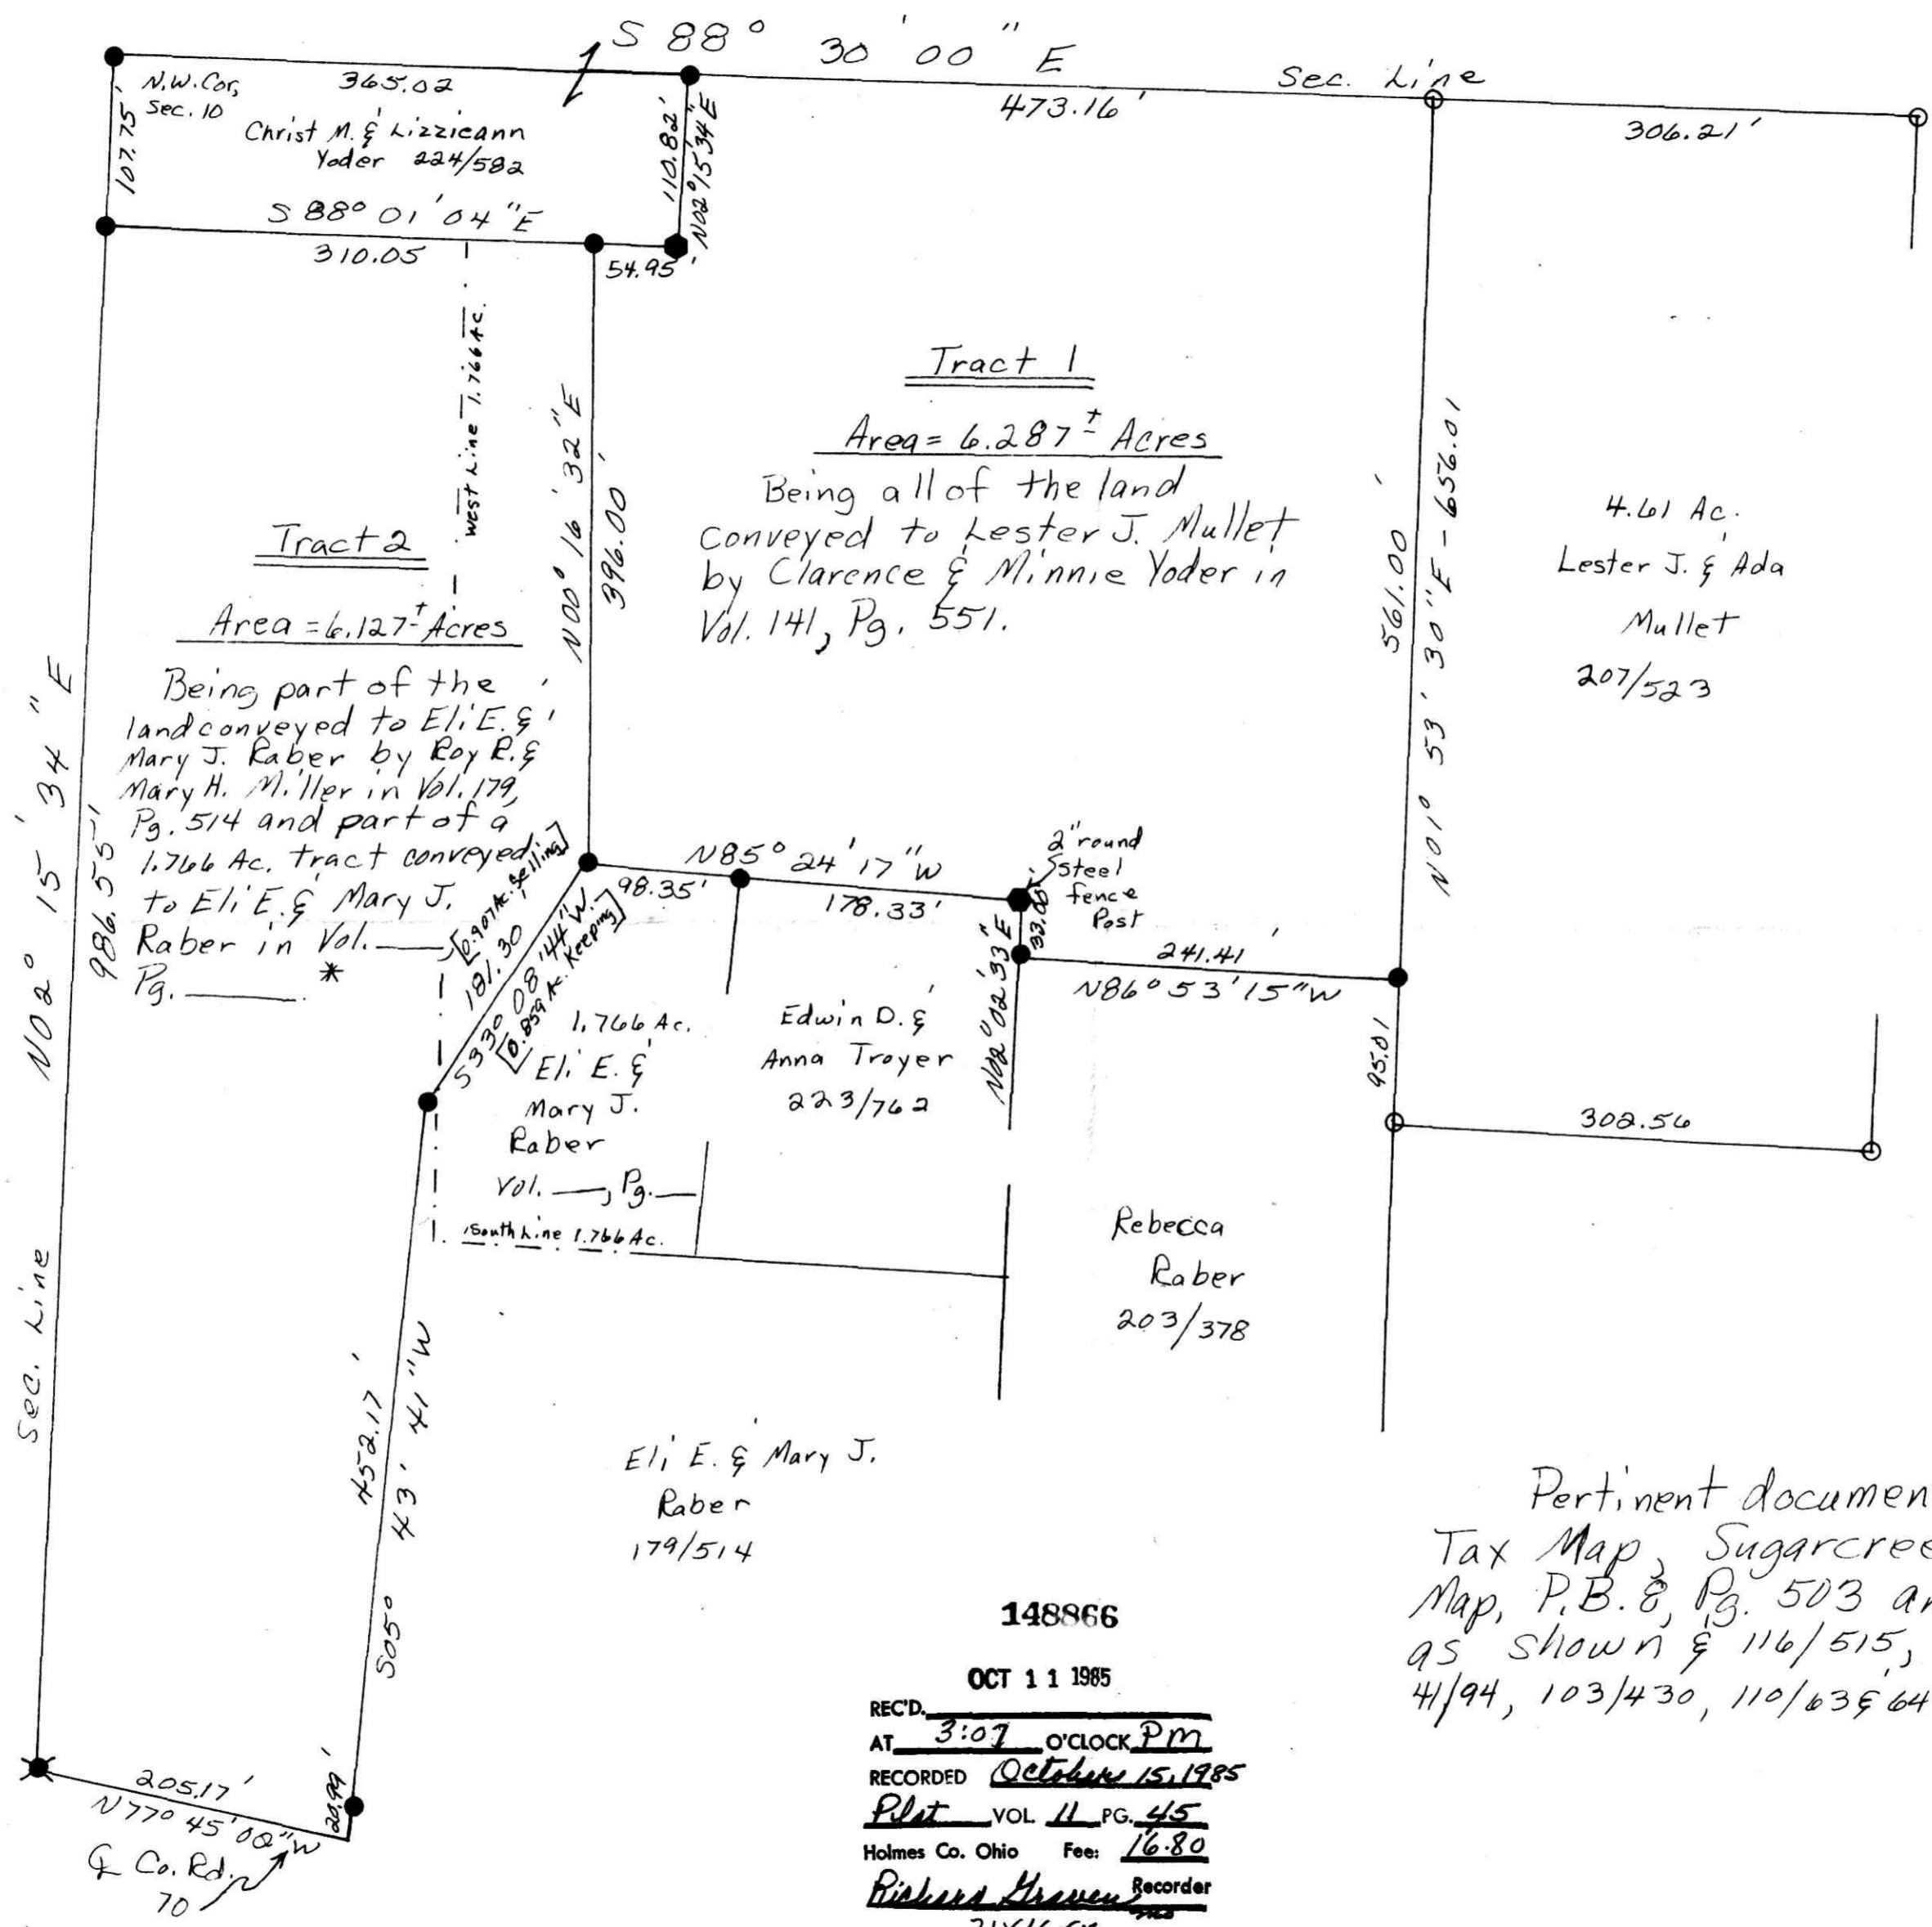 S 88° 30' 00" E
Sec. Line
N.W. Cor,
Sec. 10
365.02'
473.16'
306.21'
107.75'
Christ M. & Lizzieann
Yoder 224/582
110.82'
N02°15'34"E
S 88° 01' 04" E
310.05
54.95'
West Line 1.766 Ac.
Tract 1
Area = 6.287± Acres
Being all of the land
conveyed to Lester J. Mullet
by Clarence & Minnie Yoder in
Vol. 141, Pg. 551.
N00° 16' 32" E
396.00'
561.00'
N01° 53' 30" E - 656.01
4.61 Ac.
Lester J. & Ada
Mullet
207/523
Tract 2
Area = 6.127± Acres
Being part of the
land conveyed to Eli E. &
Mary J. Raber by Roy R. &
Mary H. Miller in Vol. 179,
Pg. 514 and part of a
1.766 Ac. tract conveyed
to Eli E. & Mary J.
Raber in Vol. ____,
Pg. ____. *
Sec. Line N02° 15' 34" E
986.55'
[0.907 Ac. Selling]
181.30'
S33° 08' 44" W.
[0.859 Ac. Keeping]
N85° 24' 17" W
98.35'
178.33'
2" round
Steel
fence
Post
33.00'
N02° 02' 33" E
241.41'
N86° 53' 15" W
95.01
302.56
1.766 Ac.
Eli E. &
Mary J.
Raber
Vol. ___, Pg. ___
South Line 1.766 Ac.
Edwin D. &
Anna Troyer
223/762
Rebecca
Raber
203/378
452.17'
S05° 43' 41" W
Eli E. & Mary J.
Raber
179/514
20.99'
205.17'
N77° 45' 00" W
℄ Co. Rd.
70
Pertinent documen
Tax Map, Sugarcree
Map, P.B. 8, Pg. 503 an
as shown & 116/515,
41/94, 103/430, 110/63 & 64
148866
OCT 11 1985
REC'D.
AT 3:07 O'CLOCK PM
RECORDED October 15, 1985
Plat VOL 11 PG. 45
Holmes Co. Ohio Fee: 16.80
Richard Graven Recorder